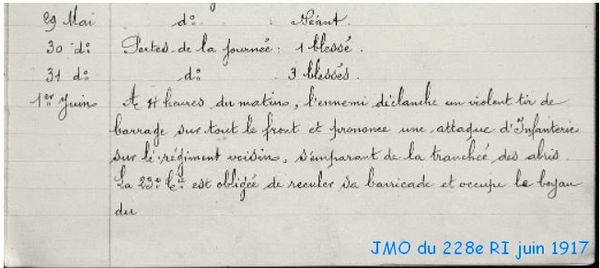 29 Mai do: Néant.
30 do Pertes de la journée: 1 blessé.
31 do do: 3 blessés.
1er Juin A 4 heures du matin, l'ennemi déclanche un violent tir de
barrage sur tout le front et prononce une attaque d'Infanterie
sur le régiment voisin, s'emparant de la tranchée des abris.
La 23e Cie est obligée de reculer sa barricade et occupe le boyau
du
JMO du 228e RI juin 1917